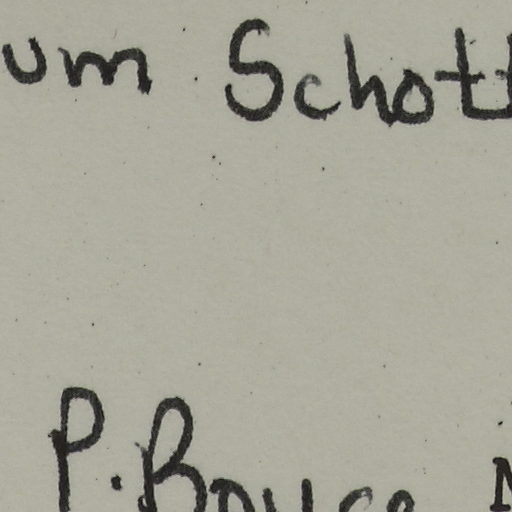 um Schott
P. Bryce